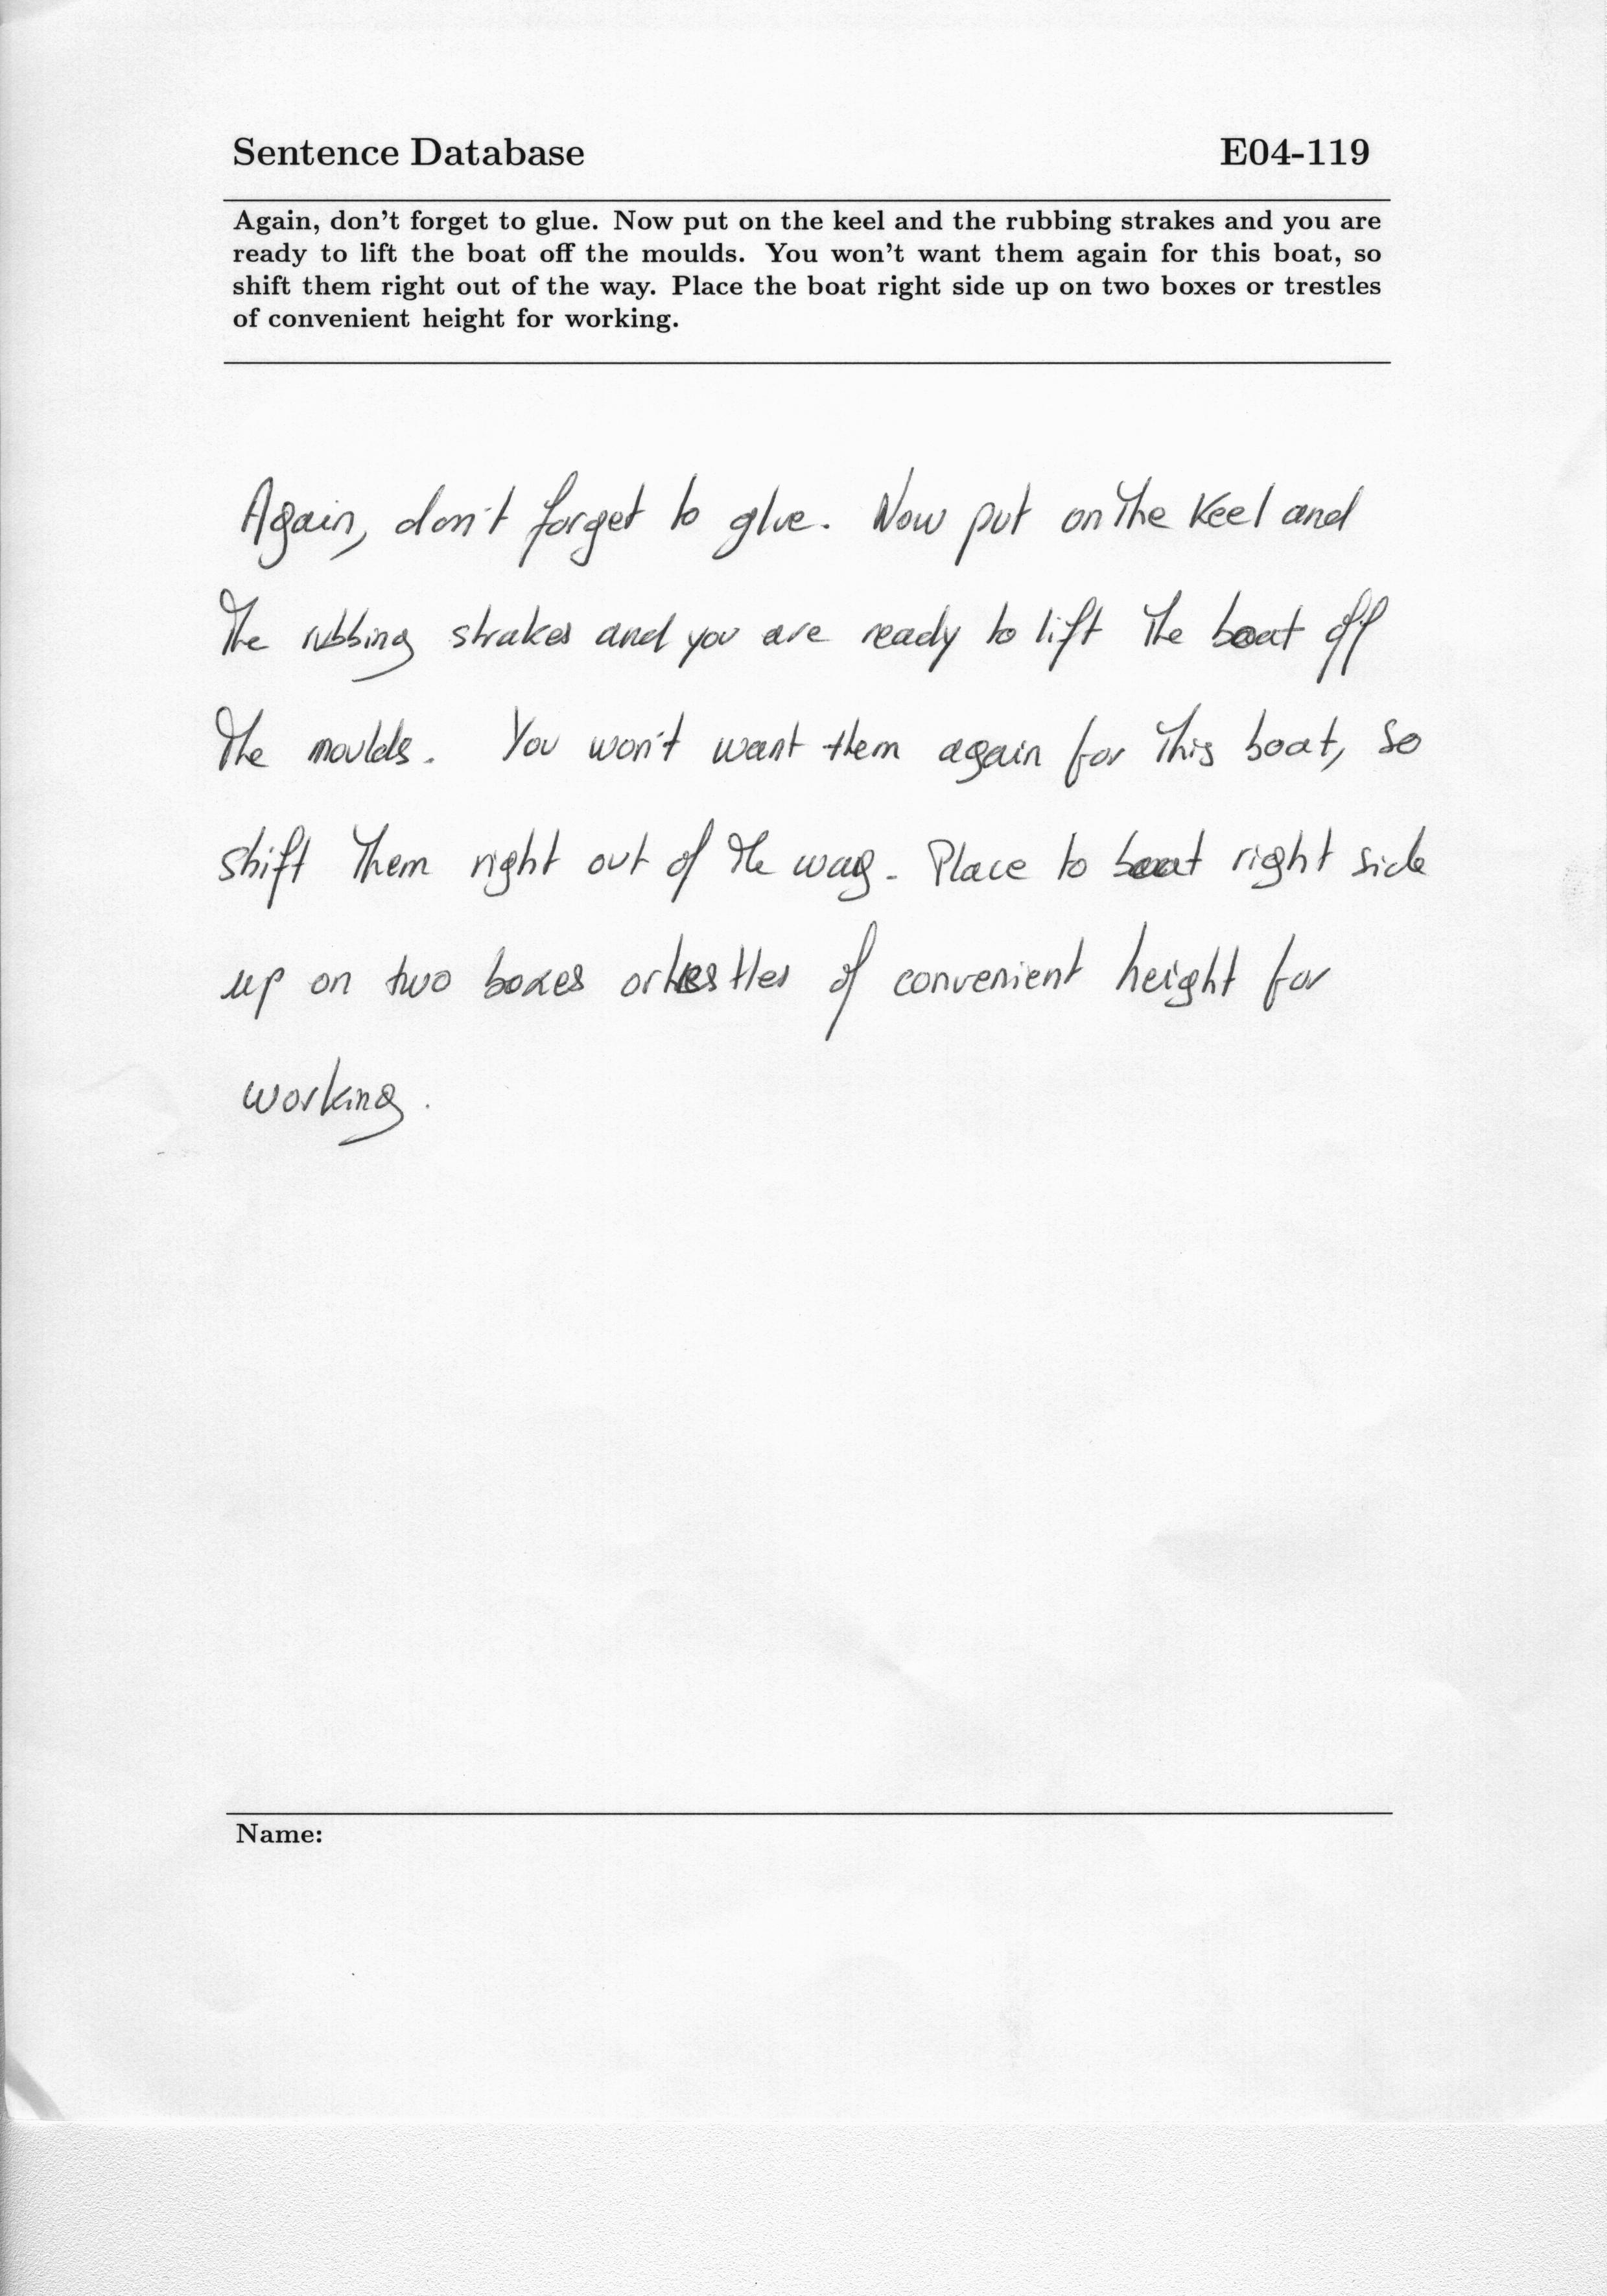 Sentence Database E04-119
Again, don't forget to glue. Now put on the keel and the rubbing strakes and you are
ready to lift the boat off the moulds. You won't want them again for this boat, so
shift them right out of the way. Place the boat right side up on two boxes or trestles
of convenient height for working.
Again, don't forget to glue. Now put on the keel and
the rubbing strakes and you are ready to lift the boat off
the moulds. You won't want them again for this boat, so
shift them right out of the way. Place to boat right side
up on two boxes or trestles of convenient height for
working.
Name: